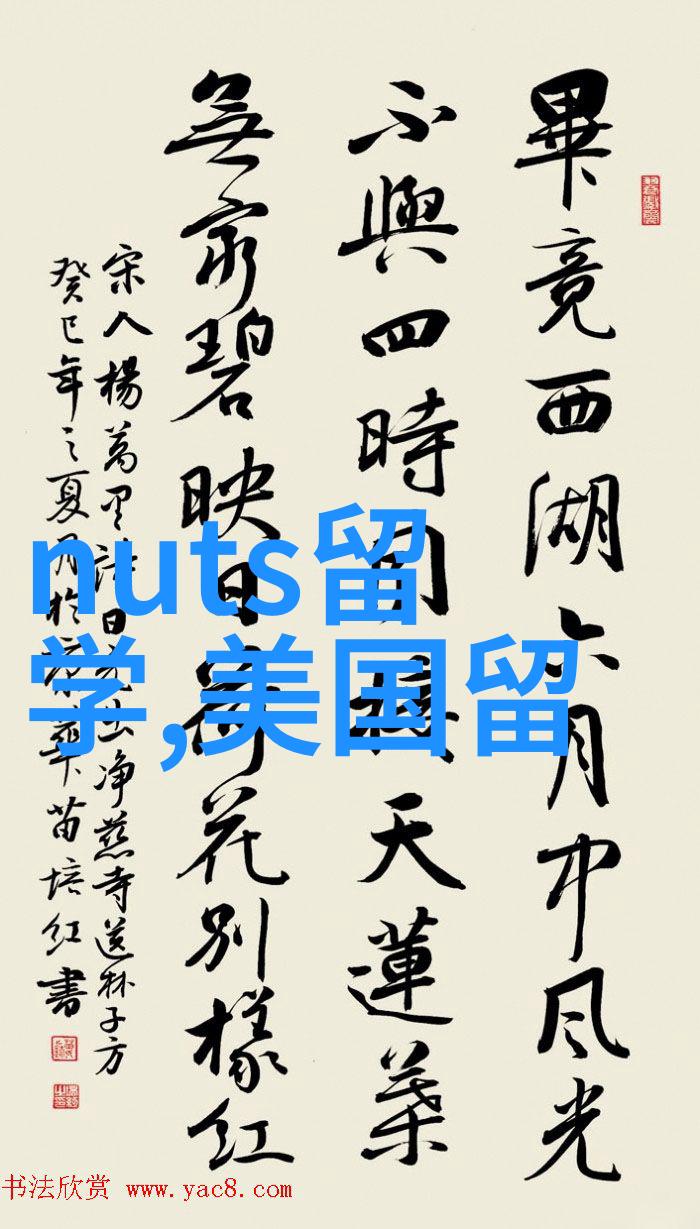 畢竟西湖六月中风光
不與四時同接天蓮葉
無穷碧映日荷花别樣红
宋人楊萬里詩曉出净慈寺送林子方
癸巳年之夏月於京華苗培红書
nuts留
学,美国留
书法欣赏 www.yac8.com